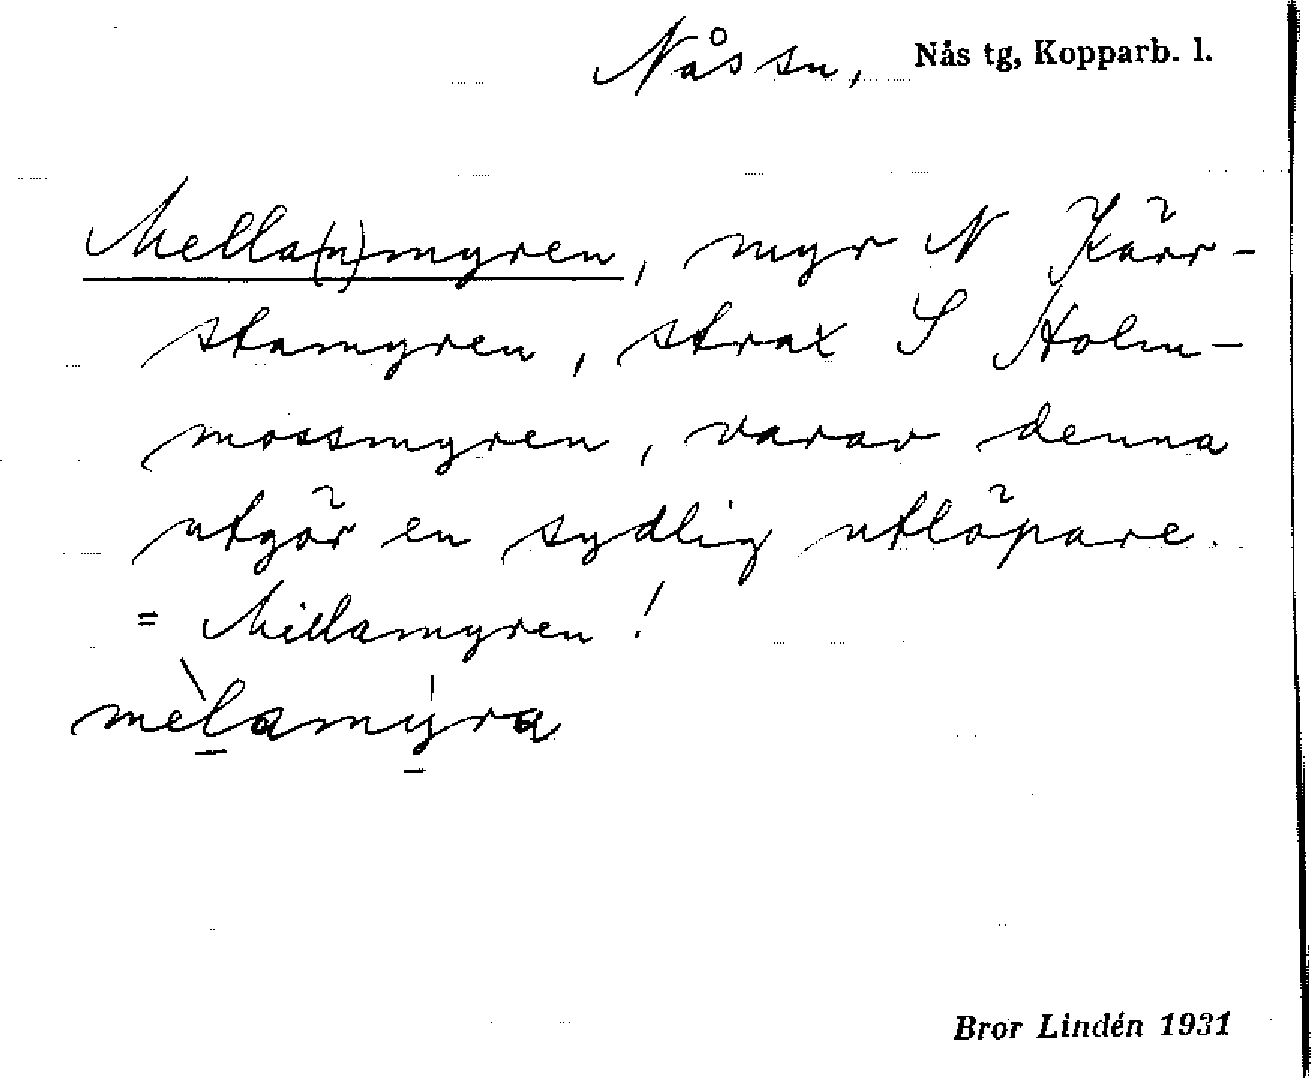 Nås sn, Nås tg, Kopparb. l.
Mella(n)myren, myr N Kärr-
stamyren, strax S Holm-
mossmyren, varav denna
utgör en sydlig utlöpare.
= Millamyren!
mèlamýra
Bror Lindén 1931